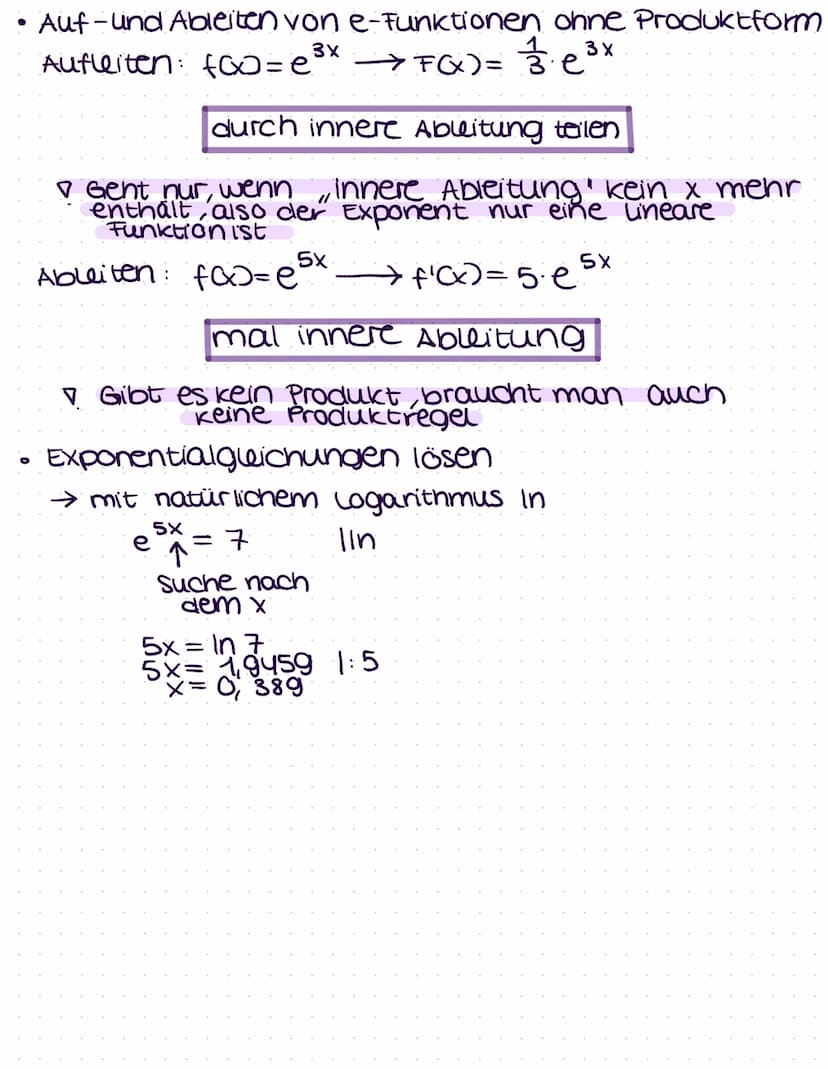 • Auf- und Ableiten von e-Funktionen ohne Produktform
Aufleiten: f(x) = e^3x → F(x) = 1/3 · e^3x
durch innere Ableitung teilen
∇ Geht nur, wenn „innere Ableitung' kein x mehr
enthält, also der Exponent nur eine lineare
Funktion ist
Ableiten: f(x) = e^5x → f'(x) = 5 · e^5x
mal innere Ableitung
∇ Gibt es kein Produkt, braucht man auch
keine Produktregel
• Exponentialgleichungen lösen
→ mit natürlichem Logarithmus ln
e^5x = 7 |ln
↑
Suche nach
dem x
5x = ln 7
5x = 1,9459 |: 5
x = 0,389